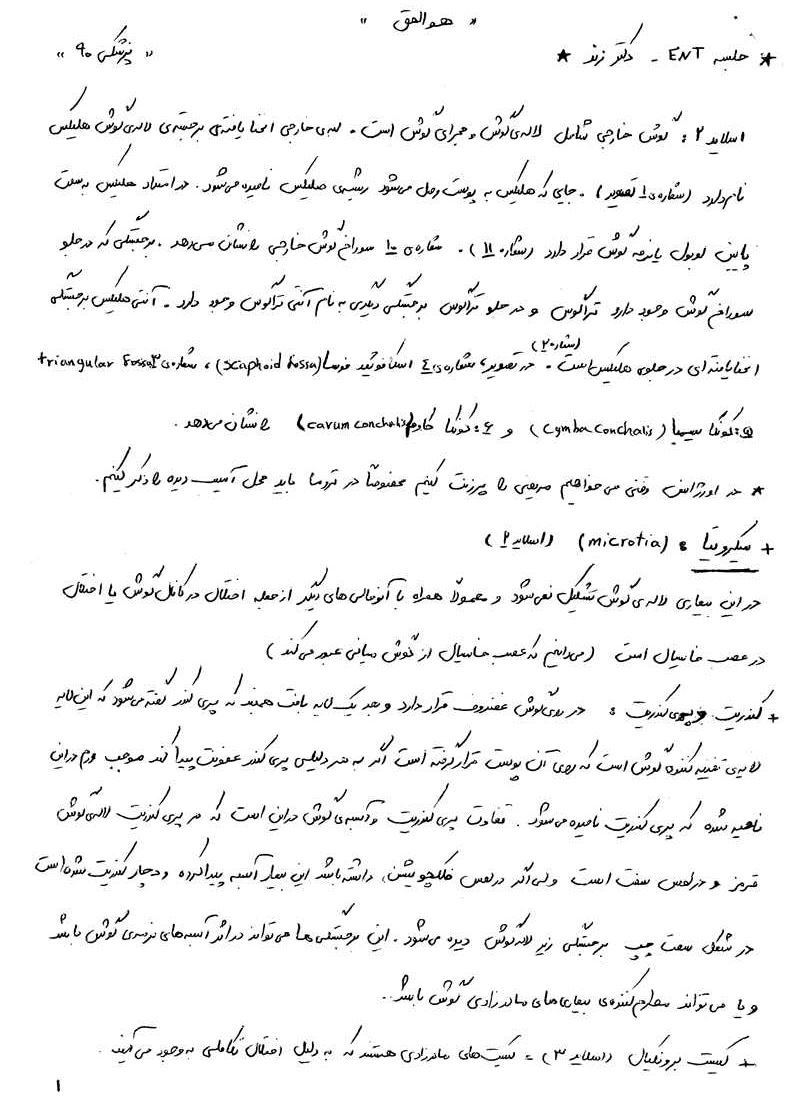 « هوالحق »
* جلسه ENT - دکتر زند * « پزشکی ۹۰ »
اسلاید ۲ : گوش خارجی شامل لاله‌ی گوش و مجرای گوش است . لبه‌ی خارجی انحنا یافته‌ی برجسته‌ی لاله‌ی گوش هلیکس
نام دارد (شماره‌ی ۱ تصویر) . جایی که هلیکس به پوست وصل می‌شود ریشه‌ی هلیکس نامیده می‌شود . در امتداد هلیکس به سمت
پایین لوبول یا نرمه گوش قرار دارد (شماره ۱۱) . شماره‌ی ۱۰ سوراخ گوش خارجی را نشان می‌دهد . برجستگی که در جلو
سوراخ گوش وجود دارد تراگوس و در جلو تراگوس برجستگی دیگری به نام آنتی تراگوس وجود دارد . آنتی هلیکس برجستگی
انحنا یافته‌ای در جلوی هلیکس است (شماره ۲) . در تصویر ، شماره‌ی ٤ اسکافوئید فوسا (scaphoid fossa) ، شماره‌ی ۳ triangular fossa
۵ : کونکا سیمبا (cymba conchalis) و ٤ : کونکا کاوم (carum conchalis) را نشان می‌دهد .
* در اورژانس وقتی می‌خواهیم مریضی را پرزنت کنیم مخصوصاً در تروما باید محل آسیب دیده را ذکر کنیم .
+ میکروتیا : (microtia) (اسلاید ۲)
در این بیماری لاله‌ی گوش تشکیل نمی‌شود و معمولاً همراه با آنومالی‌های دیگر از جمله اختلال در کانال گوش یا اختلال
در عصب فاسیال است (می‌دانیم که عصب فاسیال از گوش میانی عبور می‌کند)
+ کندریت و پری کندریت : در روی گوش غضروف قرار دارد و بعد یک لایه بافت همبند که پری کندر گفته می‌شود که این لایه
لایه‌ی تغذیه کننده گوش است که روی آن پوست قرار گرفته است اگر به هر دلیلی پری کندر عفونت پیدا کند موجب ورم در این
ناحیه شده که پری کندریت نامیده می‌شود . تفاوت پری کندریت و آبسه‌ی گوش در این است که در پری کندریت لاله‌ی گوش
قرمز و در لمس سفت است ولی اگر در لمس فلکچویشن داشته باشد این بیمار آبسه پیدا کرده و دچار کندریت شده است
در شکل سمت چپ برجستگی زیر لاله گوش دیده می‌شود . این برجستگی‌ها می‌تواند در اثر آبسه‌های نرمه‌ی گوش باشد
و یا می‌تواند مطرح کننده‌ی بیماری‌های مادرزادی گوش باشد .
+ کیست برونکیال (اسلاید ۳) = کیست‌های مادرزادی هستند که به دلیل اختلال تکاملی به وجود می‌آیند .
۱